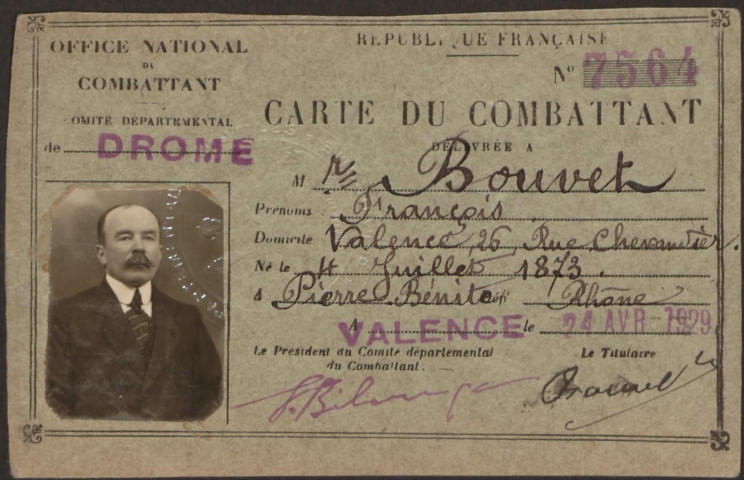 OFFICE NATIONAL
DU
COMBATTANT
COMITÉ DÉPARTEMENTAL
de DROME
RÉPUBLIQUE FRANÇAISE
N° 7564
CARTE DU COMBATTANT
DÉLIVRÉE A
M Bouvet
Prénoms : François
Domicile Valence 26, Rue Chevandier.
Né le 4 Juillet 1873.
à Pierre Bénite Rhône
A VALENCE le 24 AVR 1929
Le Président du Comité départemental
du Combattant.
Le Titulaire
Bouvet